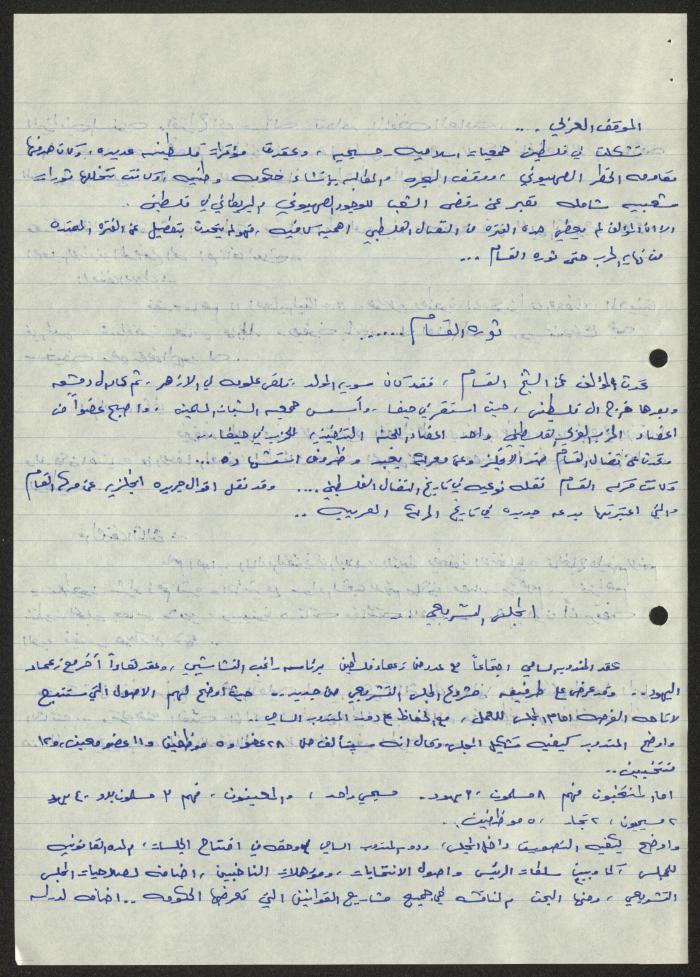 الموقف العربي . . .
تشكلت في فلسطين جمعيات اسلامية - مسيحية ، وعقدت مؤتمرات فلسطينية عديدة ، وكان هدفها
مقاومة الخطر الصهيوني ، ووقف الهجرة والمطالبة بإنشاء حكومة وطنية ، وكانت تتخللها ثورات
شعبية شاملة تعبر عن رفض الشعب للوجود الصهيوني والبريطاني في فلسطين ..
الا ان المؤلف لم يعطي هذه الفترة من النضال الفلسطيني اهمية كافية ، فهو لم يتحدث بتفصيل عن الفترة الممتدة
من نهاية الحرب حتى ثورة القسام ...
ثورة القسام .....
تحدث المؤلف عن الشيخ القسام ، فقد كان سوري المولد ، تلقى علومه في الازهر ، ثم عاد الى دمشق
وبعدها خرج الى فلسطين ، حيث استقر في حيفا ، وأسس جمعية الشبان المسلمين . واصبح عضواً من
اعضاء الحزب العربي الفلسطيني واحد اعضاء اللجنة التنفيذية للحزب في حيفا ..
وتحدث عن نضال القسام ضد الانكليز وعن معركة يعبد وظروف استشهاده ..
وكانت حركة القسام نقلة نوعية في تاريخ النضال الفلسطيني .... وقد نقل اقوال جريدة انجليزية عن حركة القسام
والتي اعتبرتها بدعة جديدة في تاريخ الحركة العربية ..
المجلس التشريعي
عقد المندوب السامي اجتماعاً مع عدد من زعماء فلسطين برئاسة راغب النشاشيبي ، وعقد لقاءاً آخر مع زعماء
اليهود .. وقد عرض على طرفيه مشروع المجلس التشريعي من جديد .. حيث أوضح لهم الاصول التي ستتبع
لاتاحة الفرصة امام المجلس للعمل ، مع الحفاظ على المندوب السامي ..
واوضح المندوب كيفية تشكيل المجلس وقال انه سيتألف من ٢٨ عضو ، ٥ موظفين و ١١ عضو معين ، و ١٢
منتخبين ..
اما المنتخبون فهم ٨ مسلمون ، ٣ يهود .. مسيحي واحد ، والمعينون ، فهم ٣ مسلمون ، ٤ يهود
٢ مسيحيون ، ٢ تجار ، ٥ موظفين .
واوضح كيفية التصويت داخل المجلس ، ودور المندوب السامي وحقه في افتتاح الجلسات ، والمدة القانونية
للمجلس ، كما وبين سلطات الرئيس واصول الانتخابات ، ومؤهلات الناخبين ، اضافة لصلاحيات المجلس
التشريعي ، ومنها البحث والمناقشة في جميع مشاريع القوانين التي تعرضها الحكومة .. اضافة لدراسة